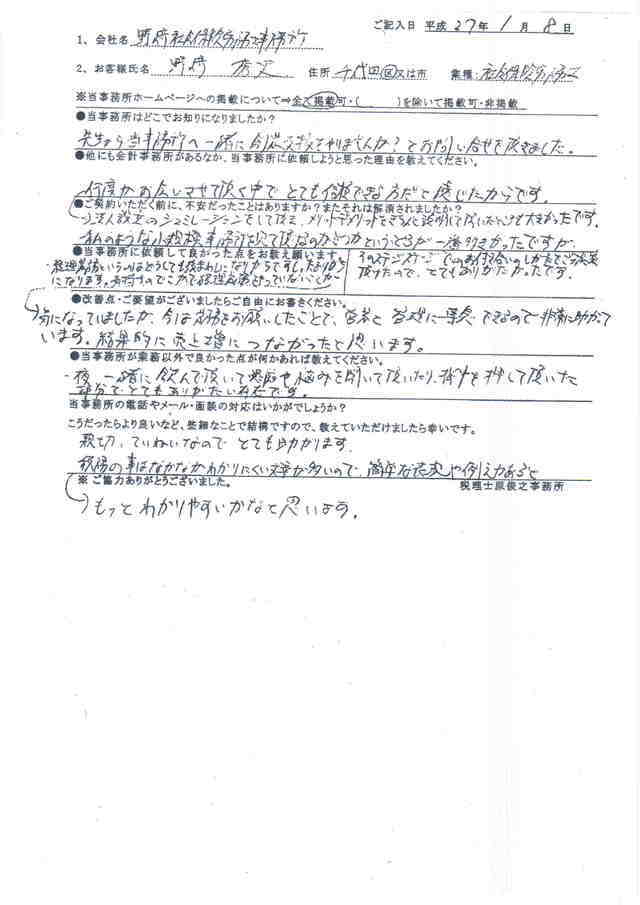 ご記入日 平成 27年 1月 8日
1、会社名 野崎社会保険労務士事務所
2、お客様氏名 野崎 住所 千代田区又は市 業種: 社会保険労務士
※当事務所ホームページへの掲載について⇒全て掲載可・( )を除いて掲載可・非掲載
●当事務所はどこでお知りになりましたか?
先生から当事務所へ一緒に をやりませんか?とお問い合せを頂きました。
●他にも会計事務所があるなか、当事務所に依頼しようと思った理由を教えてください。
何度かお会いさせて頂く中で とても信頼できる方だと感じたからです。
●ご契約いただく前に、不安だったことはありますか?またそれは解消されましたか?
シュミレーションをして頂き、メリットデメリットを 説明して頂いたことが大きかったです。
私のような小規模事務所を見て頂けるのかどうかというところが一番大きかったですが、
●当事務所に依頼して良かった点をお教え願います。
そのステージステージでのお付き合いのしかたをご
頂けたので、とてもありがたかったです。
・経理業務というのはどうしても後まわしになりがちですし、
になります。
●改善点・ご要望がございましたらご自由にお書きください。
気になっていましたが、今は業務をお願いしたことで、営業と 管理に集中できるので非常に助かって
います。結果的に売上増につながったと思います。
●当事務所が業務以外で良かった点が何かあれば教えてください。
・夜、一緒に飲んで頂いて 悩みを聞いて頂いたり、背中を押して頂いた
部分でとてもありがたい存在です。
当事務所の電話やメール・面談の対応はいかがでしょうか?
こうだったらより良いなど、些細なことで結構ですので、教えていただけましたら幸いです。
親切、ていねいなので とても助かります。
税務の事はなかなかわかりにくい 文章が多いので、簡単な表現や例えがあると
※ ご協力ありがとうございました。 税理士原俊之事務所
もっとわかりやすいかなと思います。